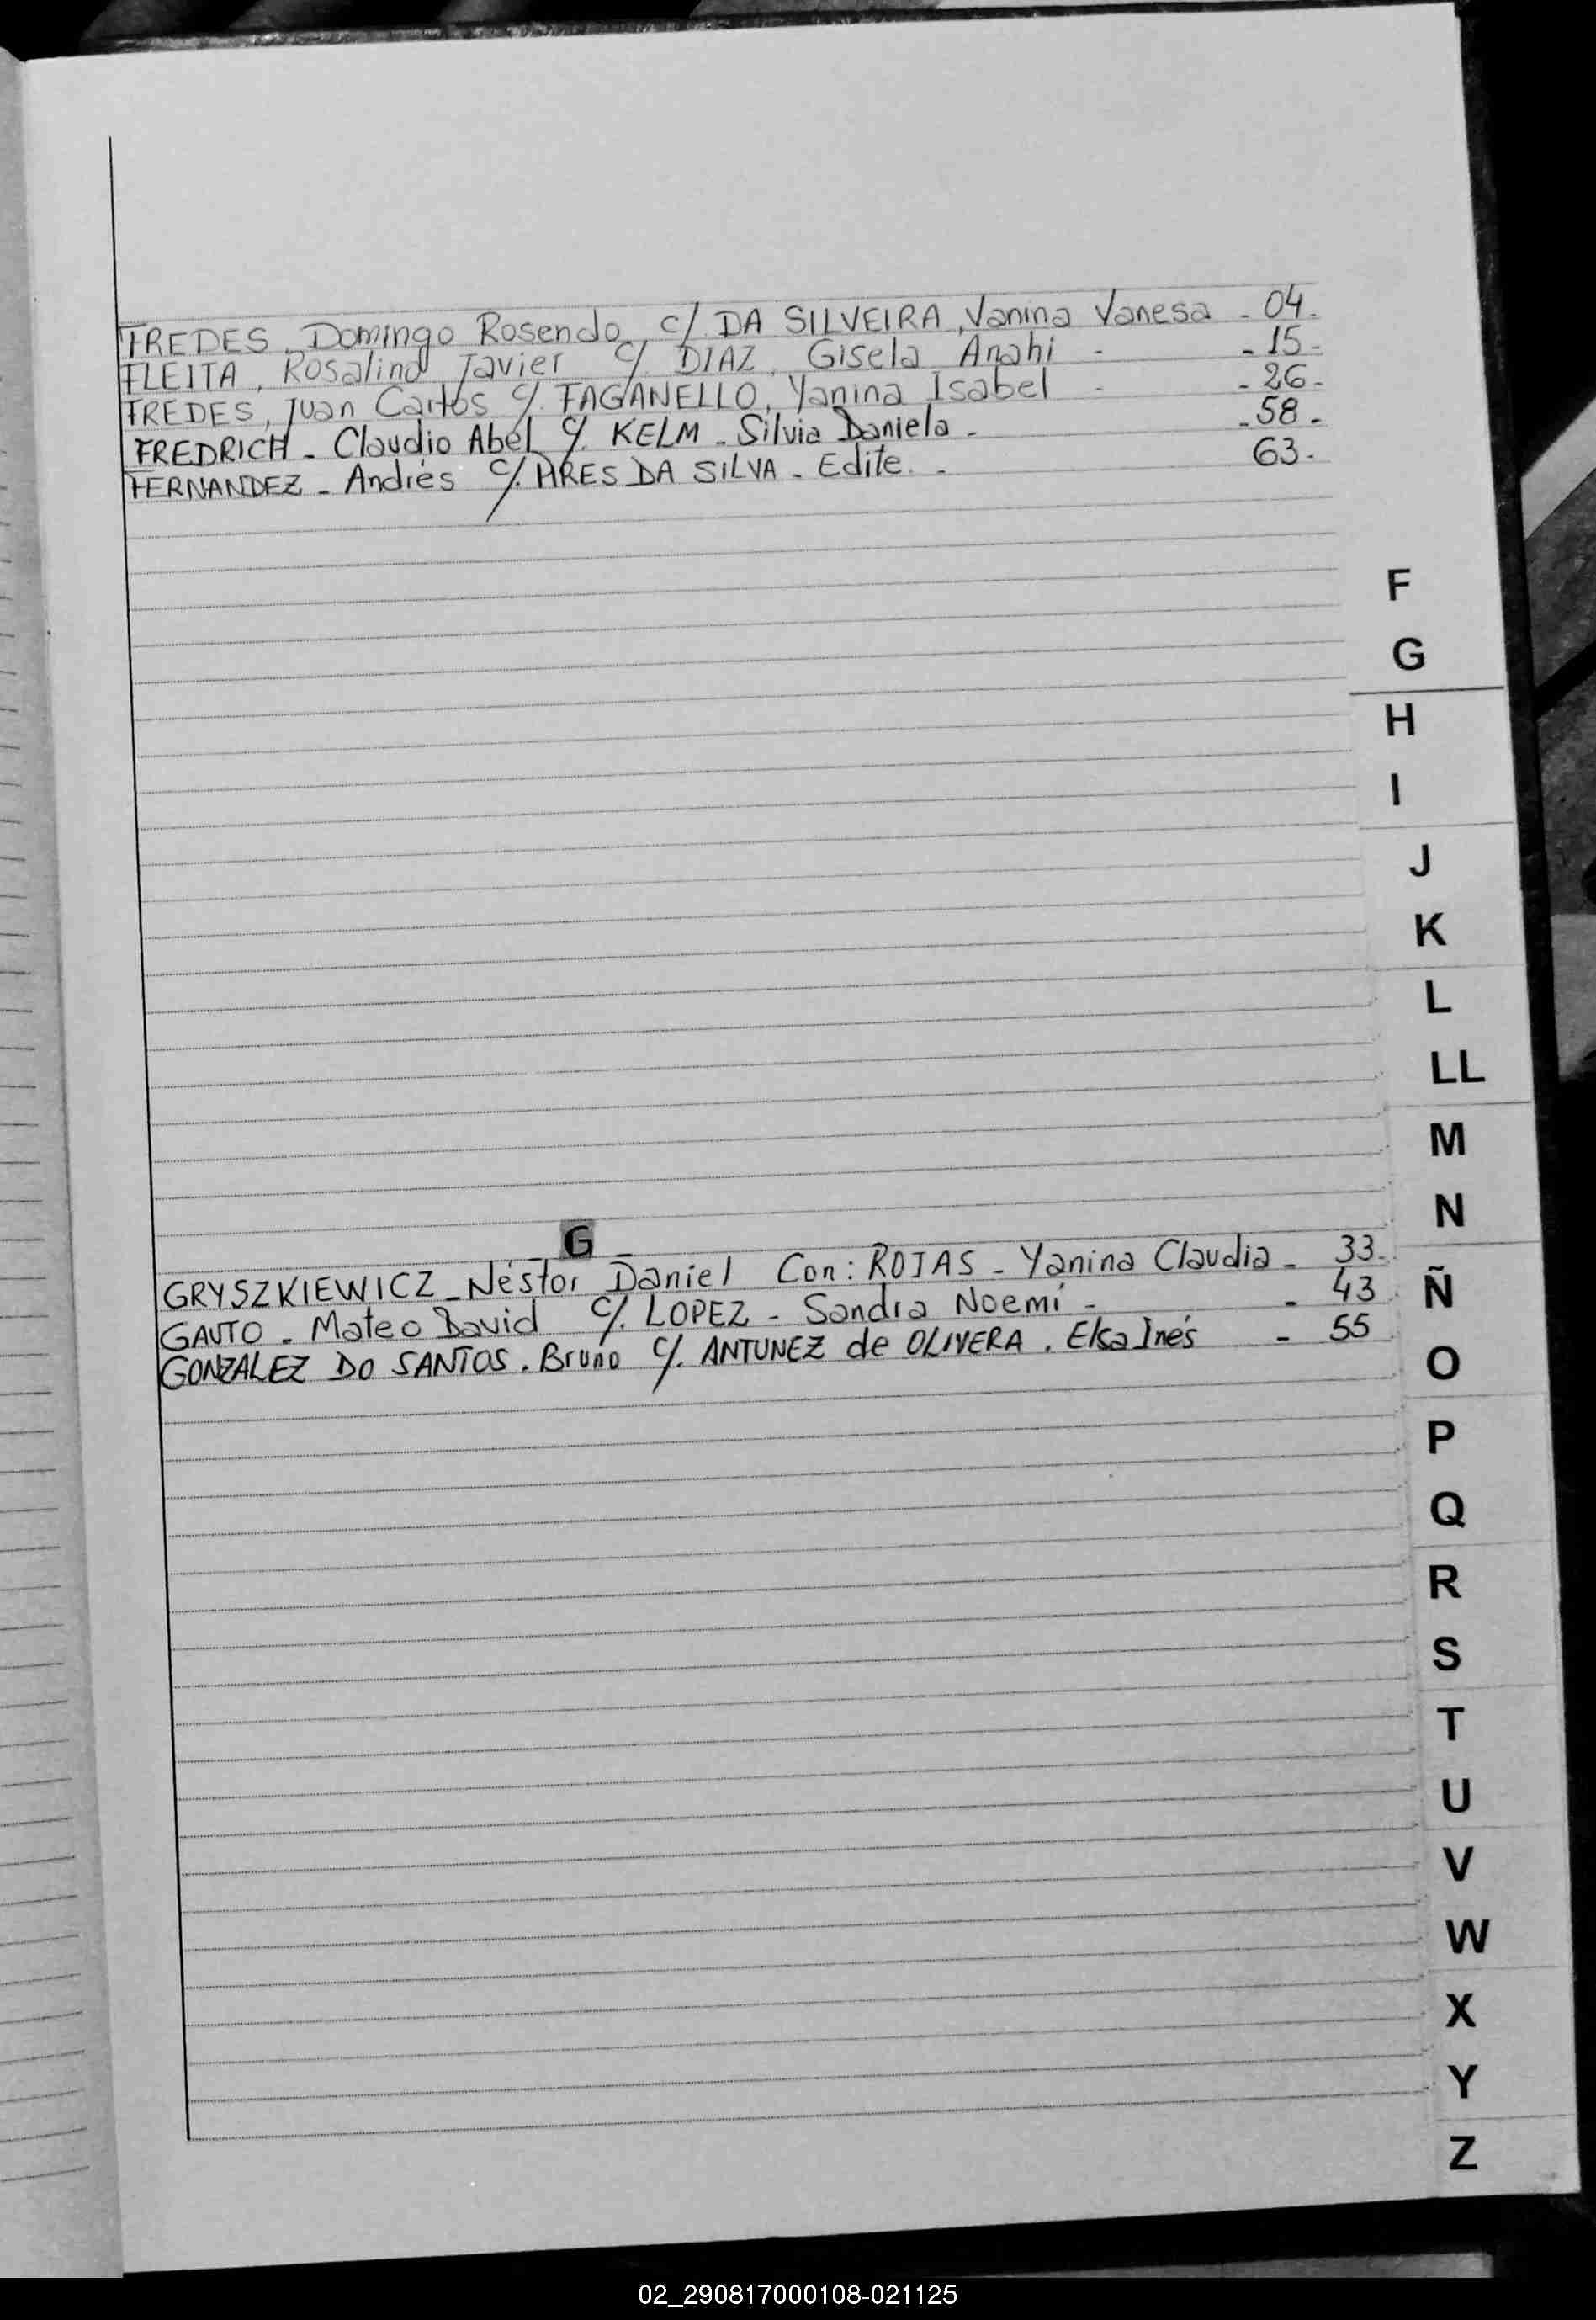 FREDES, Domingo Rosendo c/ DA SILVEIRA, Vanina Vanesa - 04.
FLEITA, Rosalino Javier c/. DIAZ, Gisela Anahi - - 15 -
FREDES, Juan Carlos c/. FAGANELLO, Yanina Isabel - - 26 -
FREDRICH - Claudio Abel c/. KELM - Silvia Daniela - - 58 -
FERNANDEZ - Andrés c/. PIRES DA SILVA - Edite. - 63 -
F
G
H
I
J
K
L
LL
M
N
- G -
GRYSZKIEWICZ - Néstor Daniel Con: ROJAS - Yanina Claudia - 33 -
GAUTO - Mateo David c/. LOPEZ - Sandra Noemí - - 43
GONZALEZ DO SANTOS. Bruno c/. ANTUNEZ de OLIVERA. Elsa Inés - 55
Ñ
O
P
Q
R
S
T
U
V
W
X
Y
Z
02_290817000108-021125